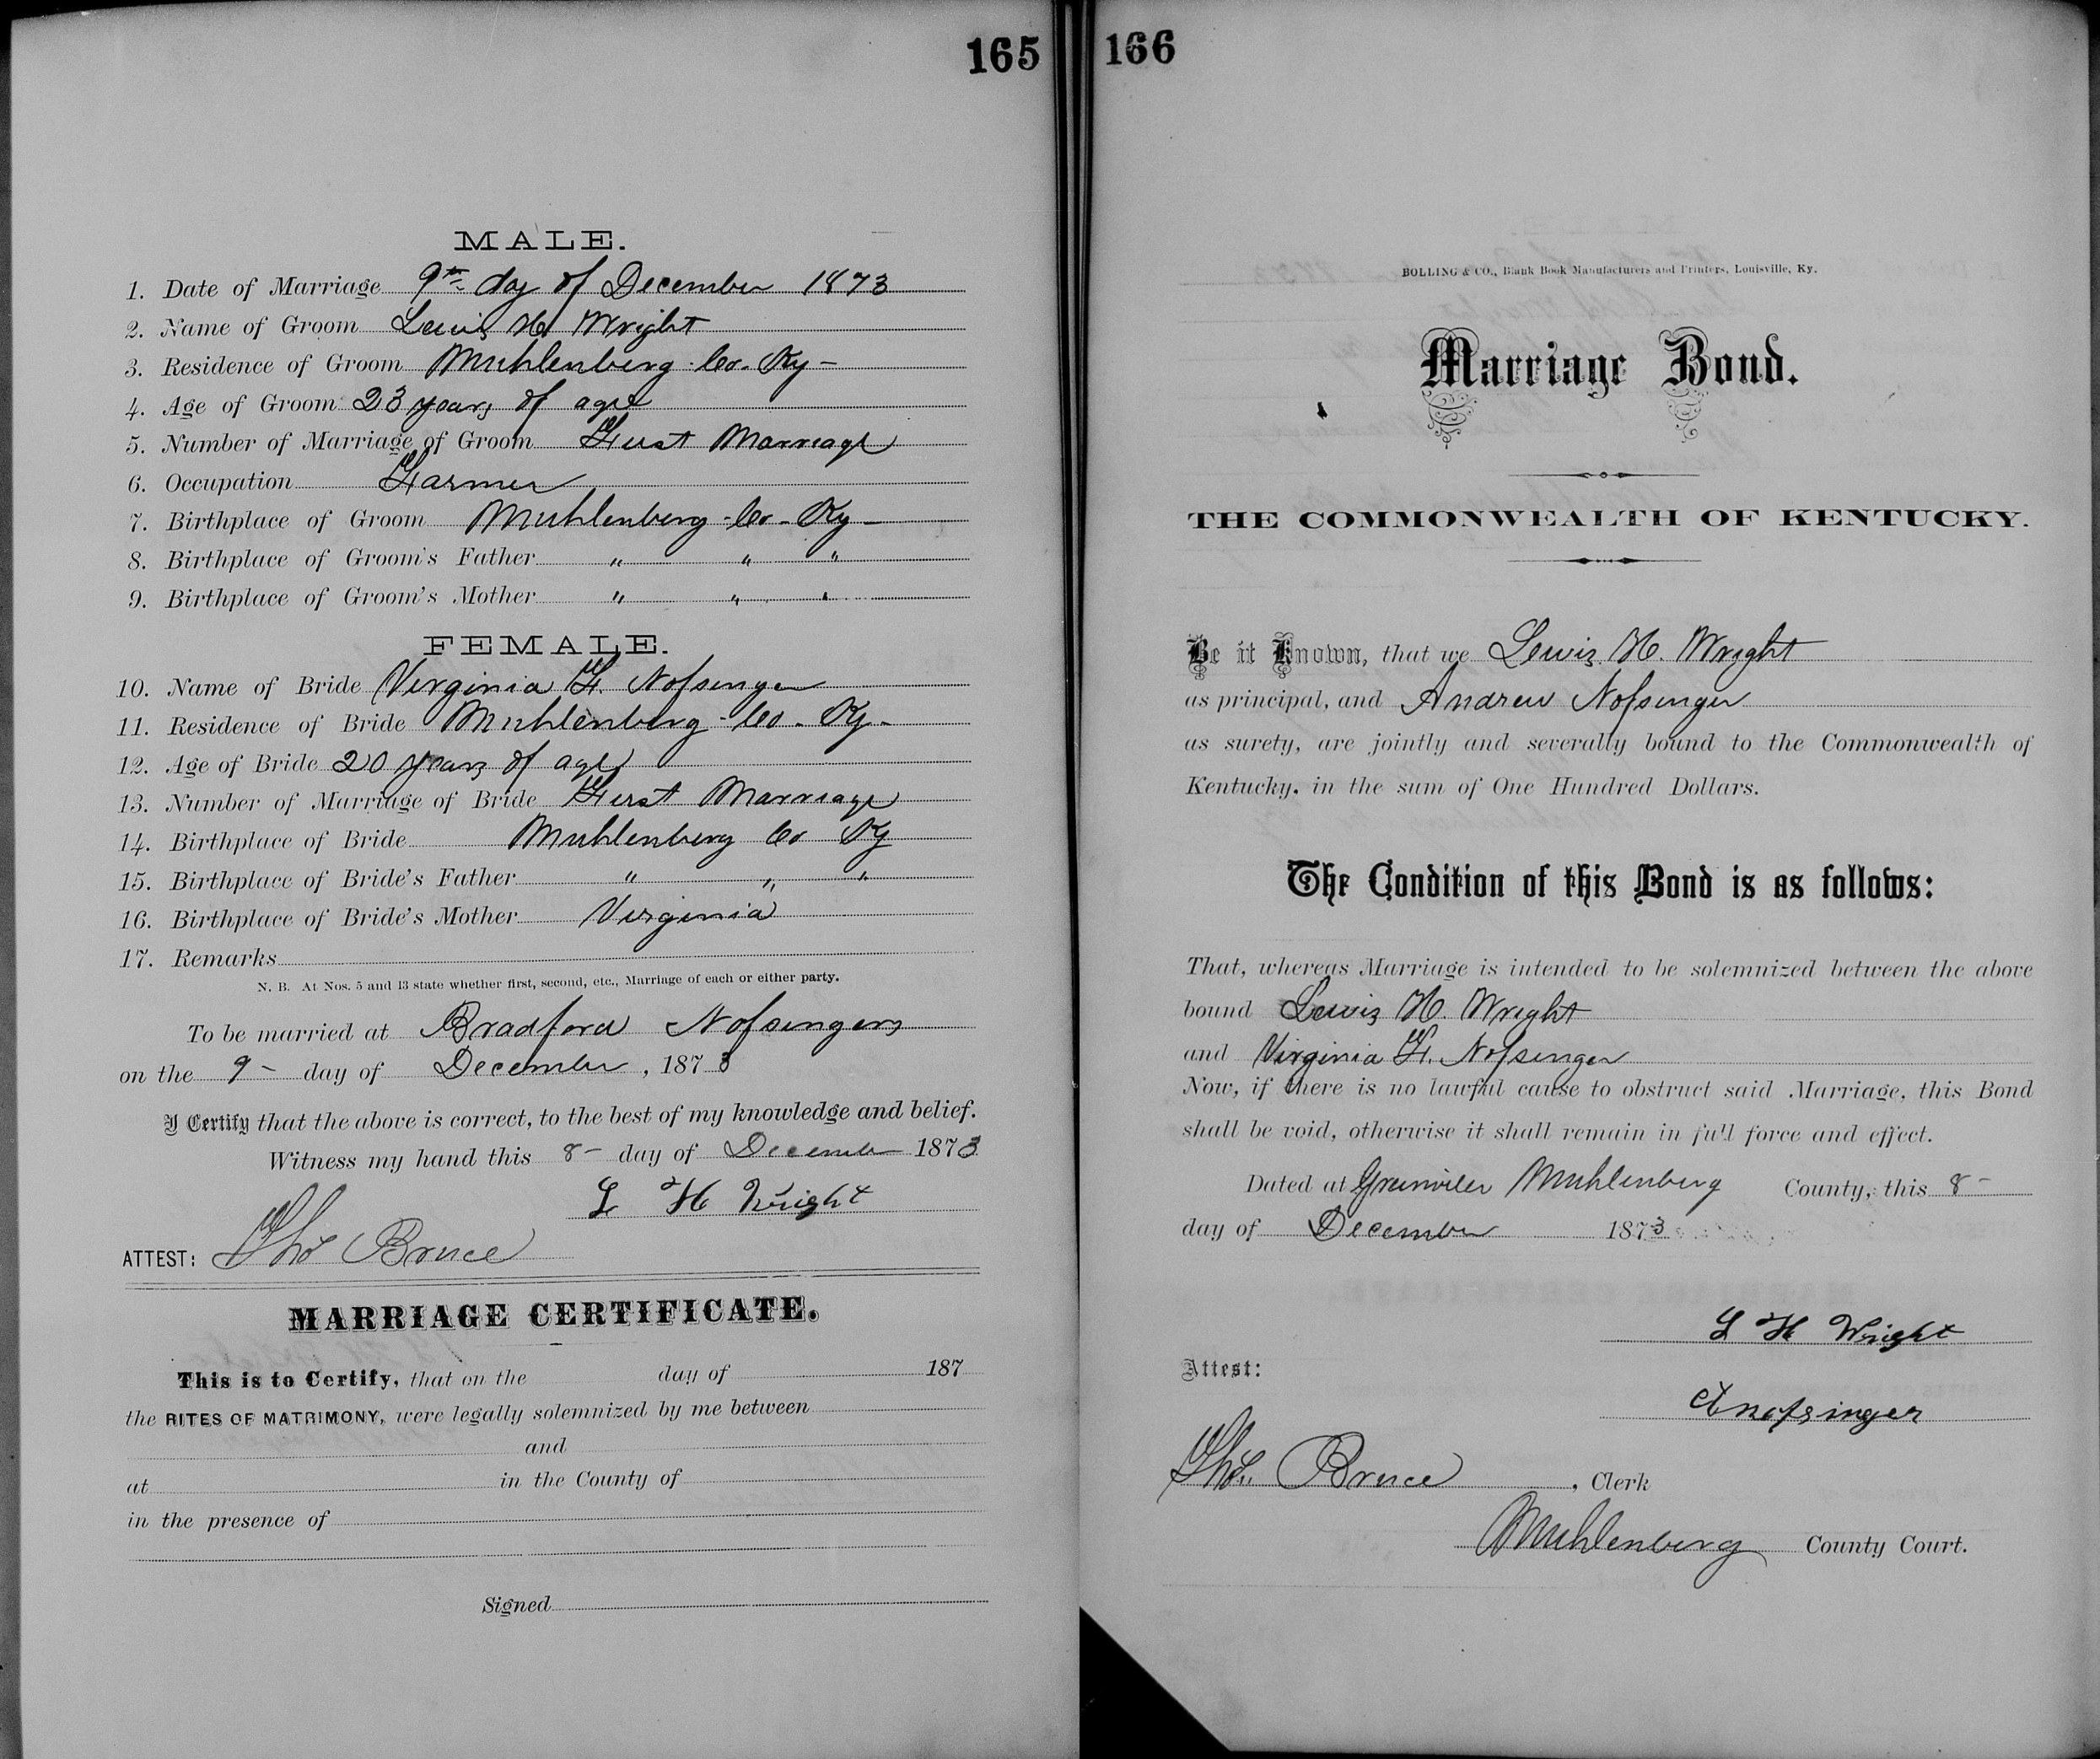 165
MALE.
1. Date of Marriage 9th day of December 1873
2. Name of Groom Lewis H Wright
3. Residence of Groom Muhlenberg Co. Ky -
4. Age of Groom 23 years of age
5. Number of Marriage of Groom First Marriage
6. Occupation Farmer
7. Birthplace of Groom Muhlenberg - Co - Ky -
8. Birthplace of Groom's Father " " "
9. Birthplace of Groom's Mother " " "
FEMALE.
10. Name of Bride Virginia F. Nofsinger
11. Residence of Bride Muhlenberg - Co - Ky -
12. Age of Bride 20 years of age
13. Number of Marriage of Bride First Marriage
14. Birthplace of Bride Muhlenberg Co Ky
15. Birthplace of Bride's Father " " "
16. Birthplace of Bride's Mother Virginia
17. Remarks
N. B. At Nos. 5 and 13 state whether first, second, etc., Marriage of each or either party.
To be married at Bradford Nofsingers
on the 9 - day of December, 1873
I Certify that the above is correct, to the best of my knowledge and belief.
Witness my hand this 8 - day of December 1873
L H Wright
ATTEST: Thos Bruce
MARRIAGE CERTIFICATE.
This is to Certify, that on the day of 187
the RITES OF MATRIMONY, were legally solemnized by me between
and
at in the County of
in the presence of
Signed
166
BOLLING & CO., Blank Book Manufacturers and Printers, Louisville, Ky.
Marriage Bond.
THE COMMONWEALTH OF KENTUCKY.
Be it Known, that we Lewis H. Wright
as principal, and Andrew Nofsinger
as surety, are jointly and severally bound to the Commonwealth of
Kentucky, in the sum of One Hundred Dollars.
The Condition of this Bond is as follows:
That, whereas Marriage is intended to be solemnized between the above
bound Lewis H. Wright
and Virginia F. Nofsinger
Now, if there is no lawful cause to obstruct said Marriage, this Bond
shall be void, otherwise it shall remain in full force and effect.
Dated at Muhlenberg County, this 8 -
day of December 1873
L H Wright
Attest:
A nofsinger
Thos. Bruce, Clerk
Muhlenberg County Court.